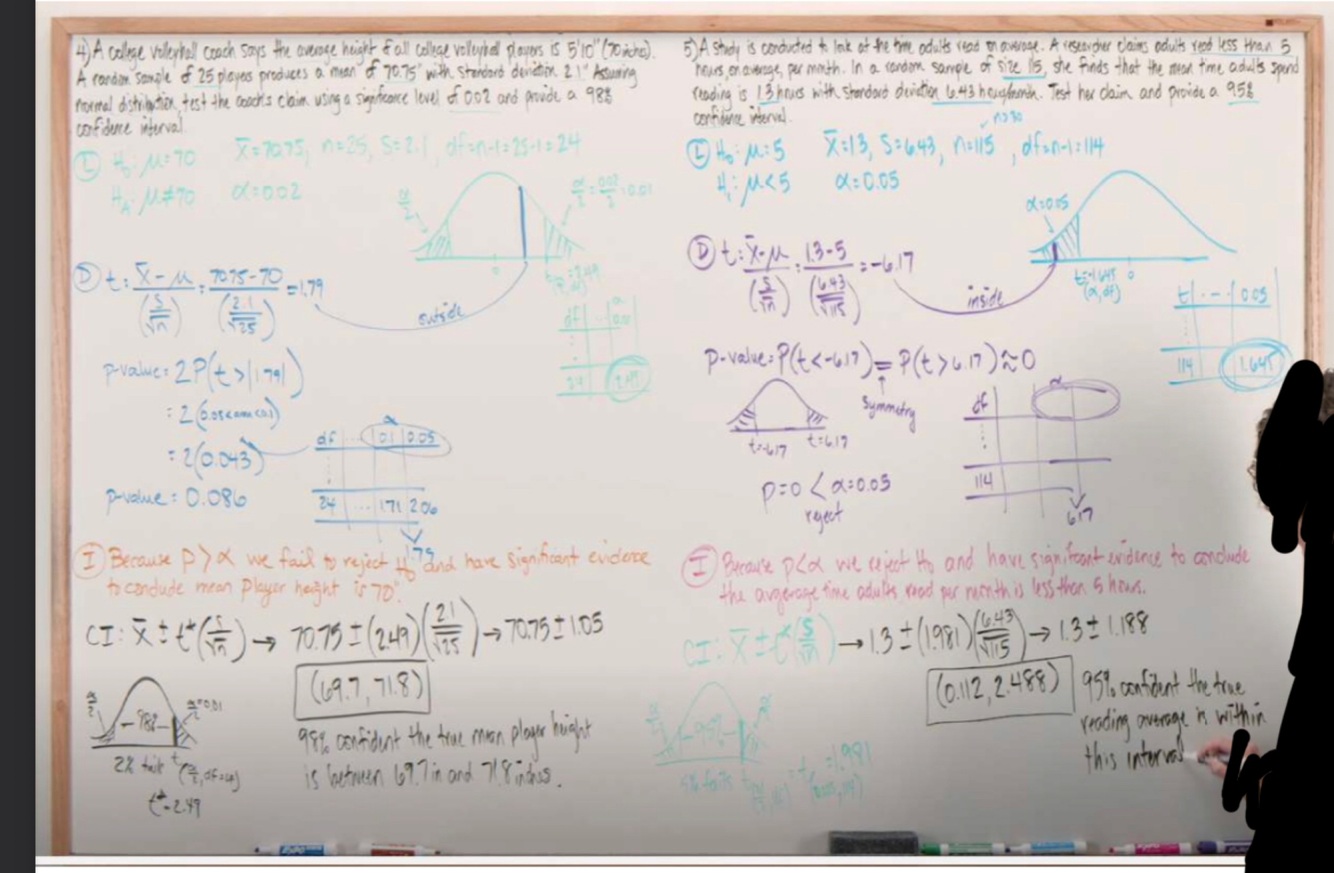 4) A college volleyball coach says the average height of all college volleyball players is 5'10" (70 inches).
A random sample of 25 players produces a mean of 70.75" with standard deviation 2.1" Assuming
normal distribution, test the coach's claim using a significance level of 0.02 and provide a 98%
confidence interval.
H₀: μ=70 x̄=70.75, n=25, S=2.1, df=n-1=25-1=24
Hₐ: μ≠70 α=0.02
α/2
α/2=0.02/2=0.01
0
D t = x̄-μ/(s/√n) = 70.75-70/(2.1/√25) = 1.79
outside
df
24 2.49
p-value = 2P(t>|1.79|)
= 2(0.043)
p-value = 0.086
df ... 0.1 0.05
24 ... 1.71 2.06
1.79
I Because p>α we fail to reject H₀ and have significant evidence
to conclude mean player height is 70".
CI: x̄ ± t*(s/√n) → 70.75 ± (2.49)(2.1/√25) → 70.75 ± 1.05
(69.7, 71.8)
α/2 -98%- α/2=0.01
2% tails
t*=2.49
98% confident the true mean player height
is between 69.7 in and 71.8 inches.
5) A study is conducted to look at the time adults read on average. A researcher claims adults read less than 5
hours, on average, per month. In a random sample of size 115, she finds that the mean time adults spend
reading is 1.3 hours with standard deviation 6.43 hours/month. Test her claim and provide a 95%
confidence interval.
n>30
H₀: μ=5 x̄=1.3, S=6.43, n=115, df=n-1=114
H₁: μ<5 α=0.05
α=0.05
t=-1.645 0
(α, df)
D t = x̄-μ/(s/√n) = 1.3-5/(6.43/√115) = -6.17
inside
t ... 0.05
114 1.645
p-value = P(t<-6.17) = P(t>6.17) ≈ 0
symmetry
t=-6.17 t=6.17
df α
114
6.17
p=0 < α=0.05
reject
I Because p<α we reject H₀ and have significant evidence to conclude
the avgerage time adults read per month is less than 5 hours.
CI: x̄ ± t*(s/√n) → 1.3 ± (1.981)(6.43/√115) → 1.3 ± 1.188
(0.112, 2.488)
95% confident the true
reading average is within
this interval
-95%-
5% tails
=1.981